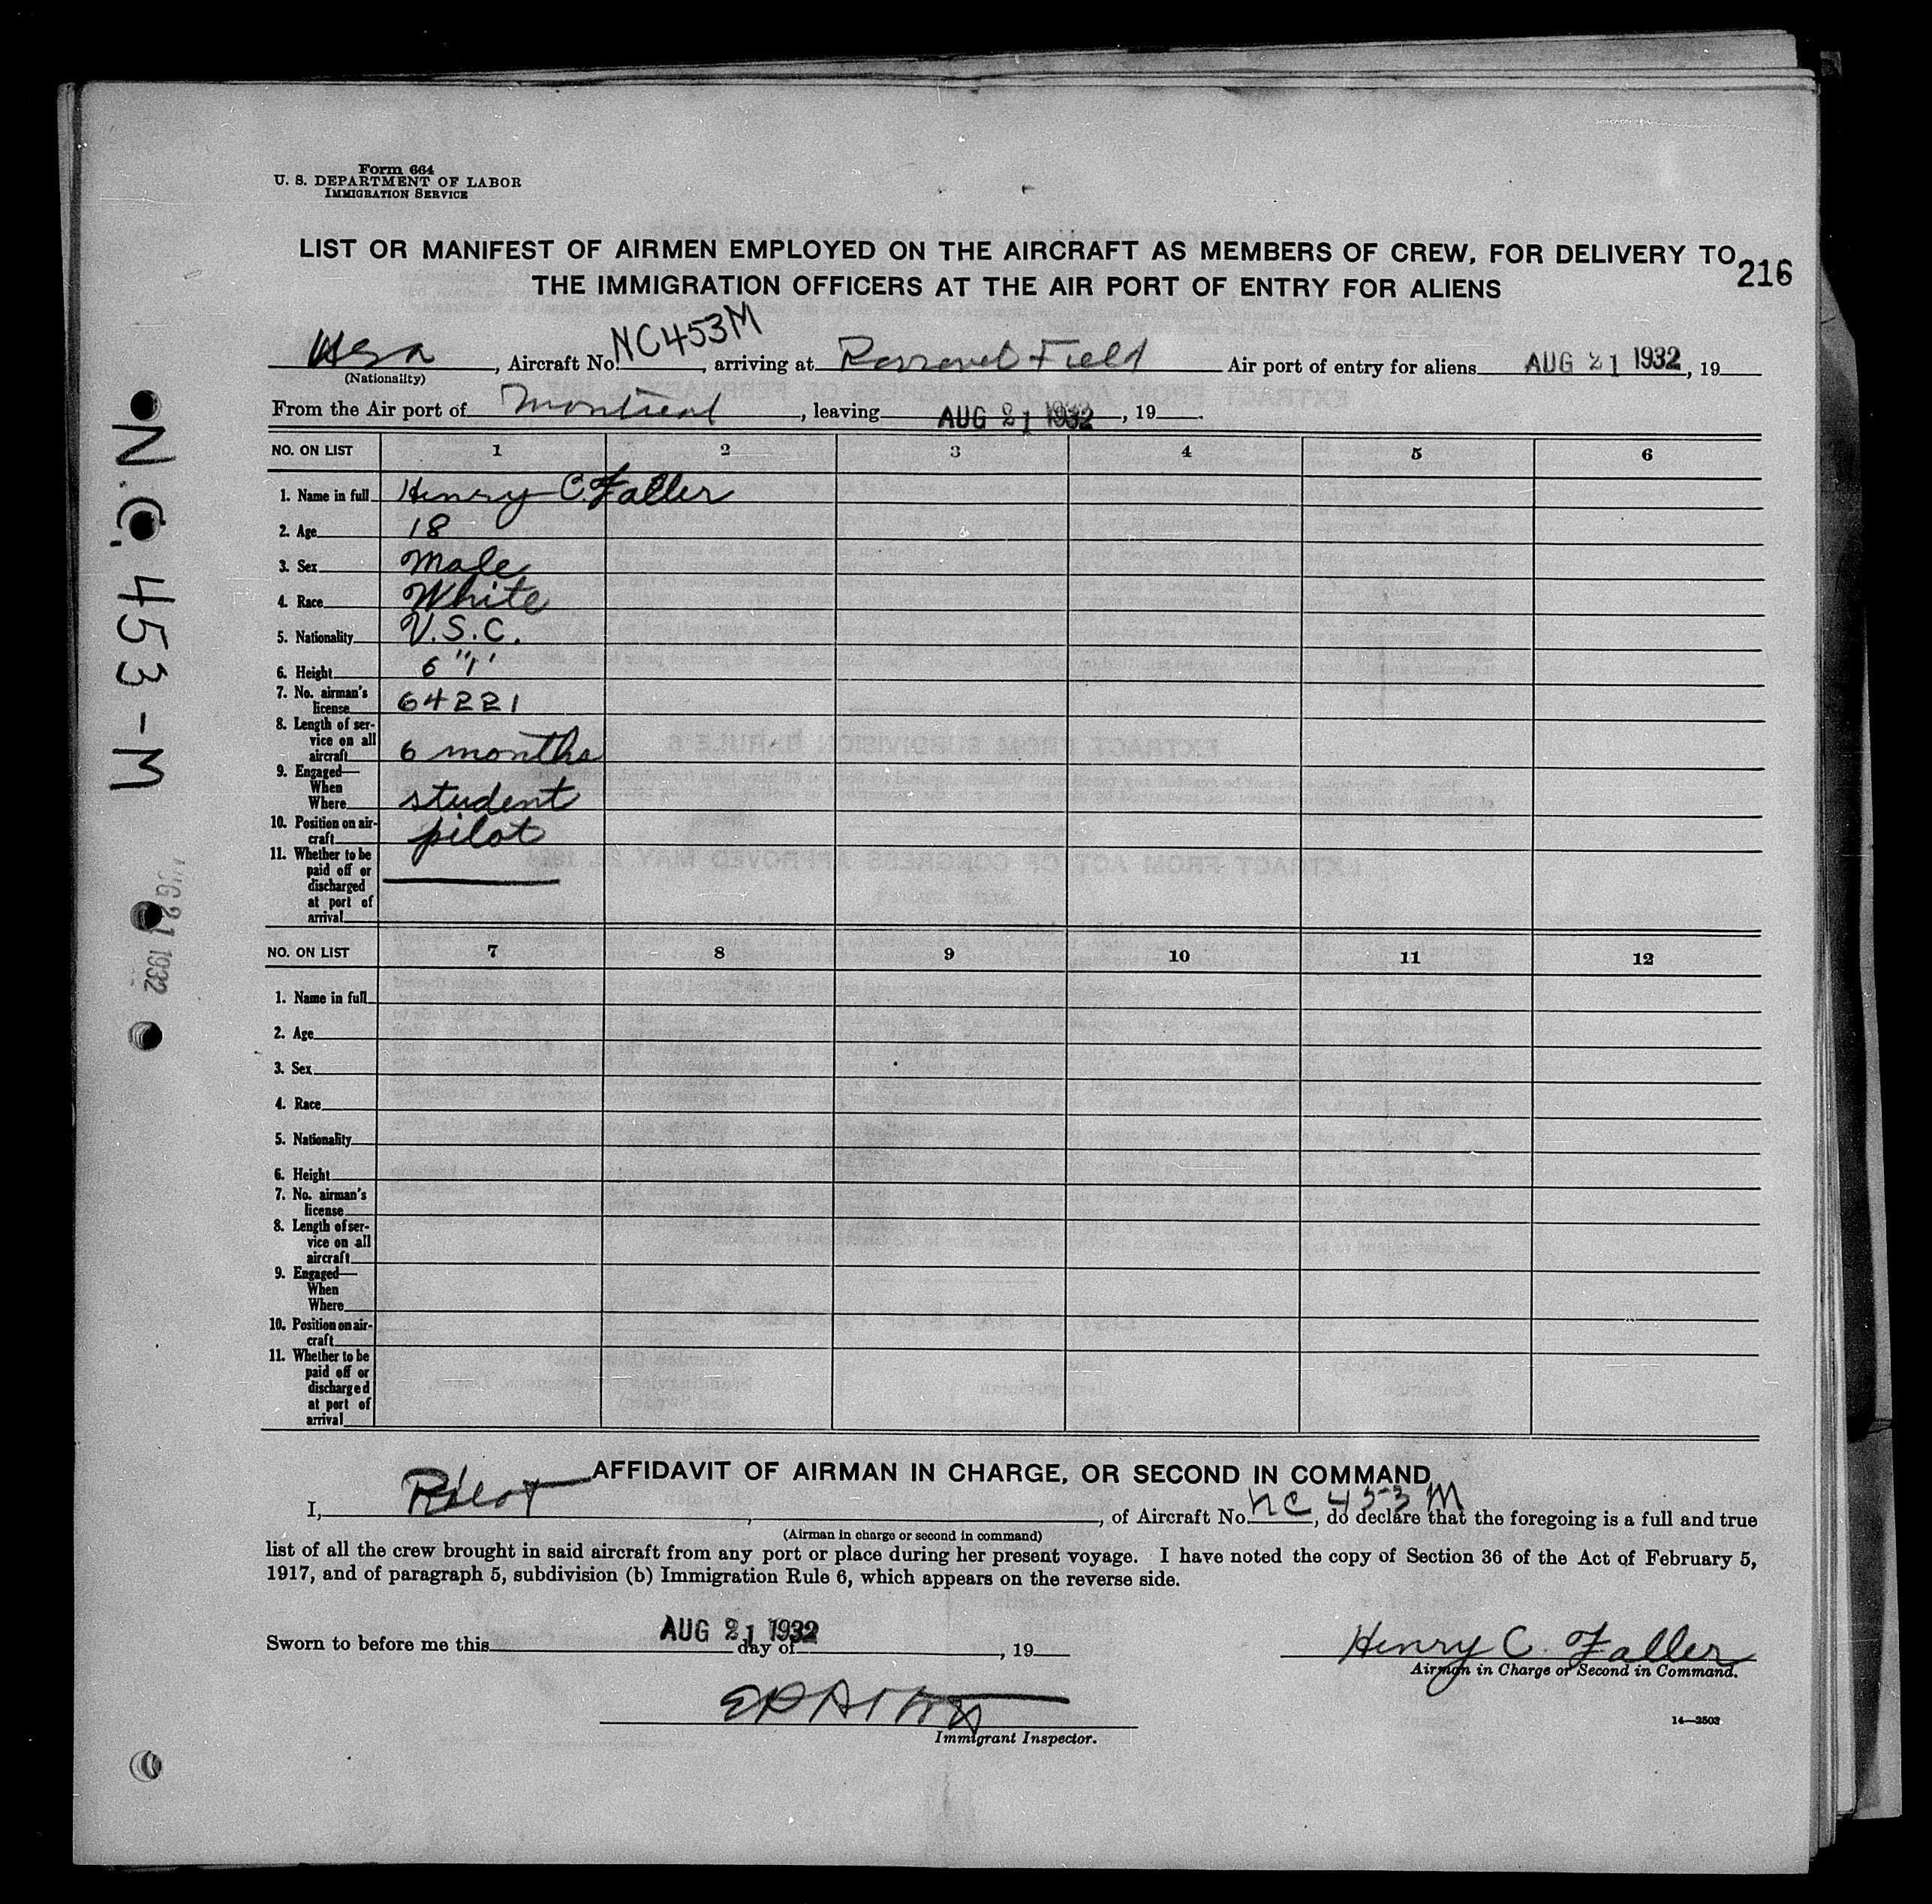 Form 664
U. S. DEPARTMENT OF LABOR
IMMIGRATION SERVICE
LIST OR MANIFEST OF AIRMEN EMPLOYED ON THE AIRCRAFT AS MEMBERS OF CREW, FOR DELIVERY TO
THE IMMIGRATION OFFICERS AT THE AIR PORT OF ENTRY FOR ALIENS
216
USA, Aircraft No. NC453M, arriving at Roosevelt Field Air port of entry for aliens AUG 21 1932, 19
(Nationality)
From the Air port of Montreal, leaving AUG 21 1932, 19 .
NO. ON LIST 1 2 3 4 5 6
1. Name in full Henry C. Faller
2. Age 18
3. Sex Male
4. Race White
5. Nationality U.S.C.
6. Height 6 "1'
7. No. airman's
license 64221
8. Length of ser-
vice on all
aircraft 6 months
9. Engaged—
When
Where student
10. Position on air-
craft pilot
11. Whether to be
paid off or
discharged
at port of
arrival
NO. ON LIST 7 8 9 10 11 12
1. Name in full
2. Age
3. Sex
4. Race
5. Nationality
6. Height
7. No. airman's
license
8. Length of ser-
vice on all
aircraft
9. Engaged—
When
Where
10. Position on air-
craft
11. Whether to be
paid off or
discharged
at port of
arrival
AFFIDAVIT OF AIRMAN IN CHARGE, OR SECOND IN COMMAND
I, Pilot, of Aircraft No. NC 453M, do declare that the foregoing is a full and true
(Airman in charge or second in command)
list of all the crew brought in said aircraft from any port or place during her present voyage. I have noted the copy of Section 36 of the Act of February 5,
1917, and of paragraph 5, subdivision (b) Immigration Rule 6, which appears on the reverse side.
Sworn to before me this AUG 21 1932 day of , 19
Henry C. Faller
Airman in Charge or Second in Command.
Immigrant Inspector.
14—2503
N.C. 453-M
AUG 21 1932